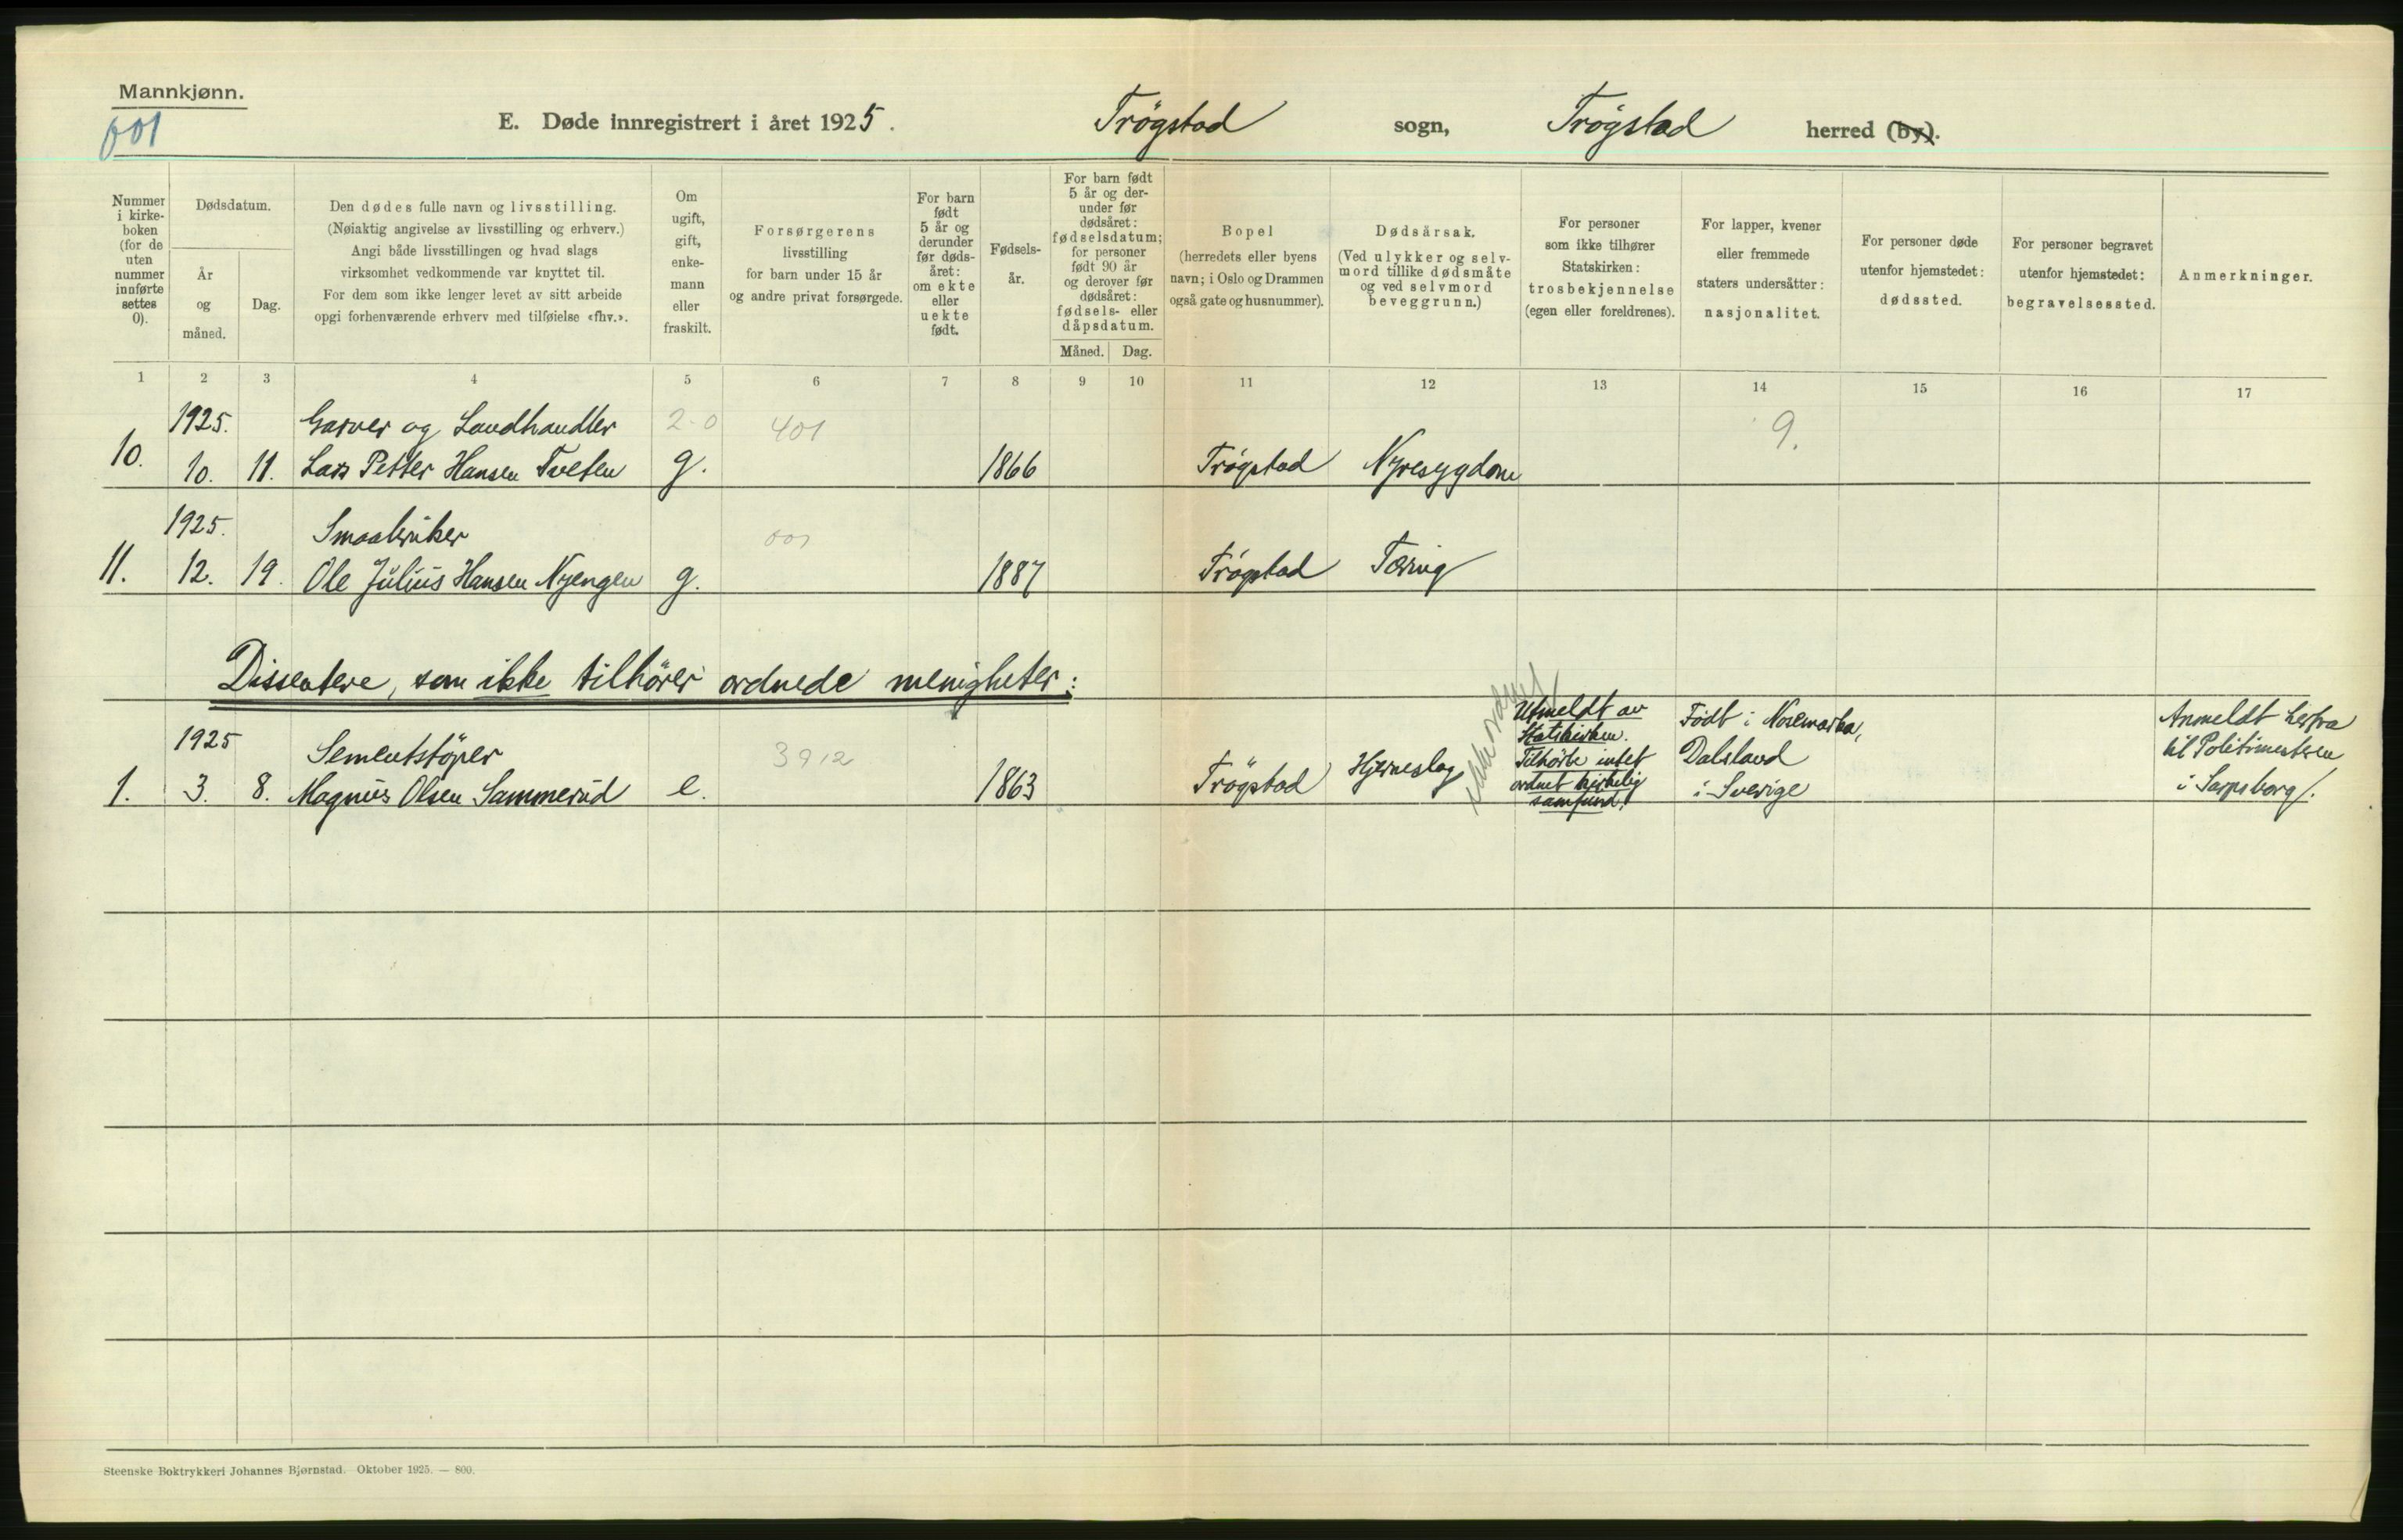 Mannkjønn.
001
E. Døde innregistrert i året 1925.
Trögstad sogn, Trögstad herred (by).
Nummer i kirke-boken (for de uten nummer innførte settes 0).
Dødsdatum.
År og måned.
Dag.
Den dødes fulle navn og livsstilling.
(Nøiaktig angivelse av livsstilling og erhverv.)
Angi både livsstillingen og hvad slags
virksomhet vedkommende var knyttet til.
For dem som ikke lenger levet av sitt arbeide
opgi forhenværende erhverv med tilføielse «fhv.».
Om ugift, gift, enke-mann eller fraskilt.
Forsørgerens
livsstilling
for barn under 15 år
og andre privat forsørgede.
For barn født 5 år og derunder før døds-året: om ekte eller uekte født.
Fødsels-år.
For barn født 5 år og der-under før dødsåret: fødselsdatum; for personer født 90 år og derover før dødsåret: fødsels- eller dåpsdatum.
Måned.
Dag.
Bopel
(herredets eller byens
navn; i Oslo og Drammen
også gate og husnummer).
Dødsårsak.
(Ved ulykker og selv-
mord tillike dødsmåte
og ved selvmord
beveggrunn.)
For personer
som ikke tilhører
Statskirken:
trosbekjennelse
(egen eller foreldrenes).
For lapper, kvener
eller fremmede
staters undersåtter:
nasjonalitet.
For personer døde
utenfor hjemstedet:
dødssted.
For personer begravet
utenfor hjemstedet:
begravelsessted.
Anmerkninger.
1 2 3 4 5 6 7 8 9 10 11 12 13 14 15 16 17
1925. Garver og Landhandler 2-0 401 9.
10. 10. 11. Lars Petter Hansen Tveten g. 1866 Trögstad Nyresygdom
1925. Smaabruker 001
11. 12. 19. Ole Julius Hansen Nyengen g. 1887 Trögstad Tæring
Dissentere, som ikke tilhörer ordnede menigheter:
1925 Sementstöper 3912
1. 3. 8. Magnus Olsen Sammerud e. 1863 Trögstad Hjerneslag
ikke ordnet
Utmeldt av
Statskirken.
Tilhørte intet
ordnet kirkelig
samfund.
Födt i Nosemarka,
Dalsland
i Sverige
Anmeldt herfra
til Politimesteren
i Sarpsborg.
Steenske Boktrykkeri Johannes Bjørnstad. Oktober 1925. — 800.